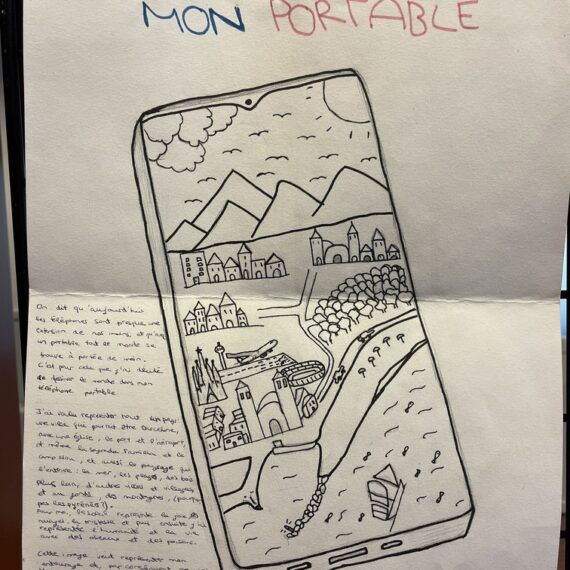 MON PORTABLE
On dit qu'aujourd'hui
les téléphones sont presque une
extension de nos mains, et qu'avec
un portable tout le monde se
trouve à portée de main.
C'est pour cela que j'ai décidé
de dessiner le monde dans mon
téléphone portable.
J'ai voulu représenter tout un pays:
une ville qui pourrait être Barcelone,
avec une église, le port et l'aéroport,
et même la Sagrada Familia et le
camp nou, et aussi les paysages qui
l'entoure: la mer, les plages, des bois
plus loin, d'autres villes et villages,
et au fond, des montagnes, (pourquoi
pas les pyrénées?).
Pour moi, le soleil représente la joie, les
nuages, la tristesse et puis ensuite j'ai
représenté l'humanité et la vie
avec des oiseaux et des poissons.
Cette image veut représenter mon
entourage et, par conséquent